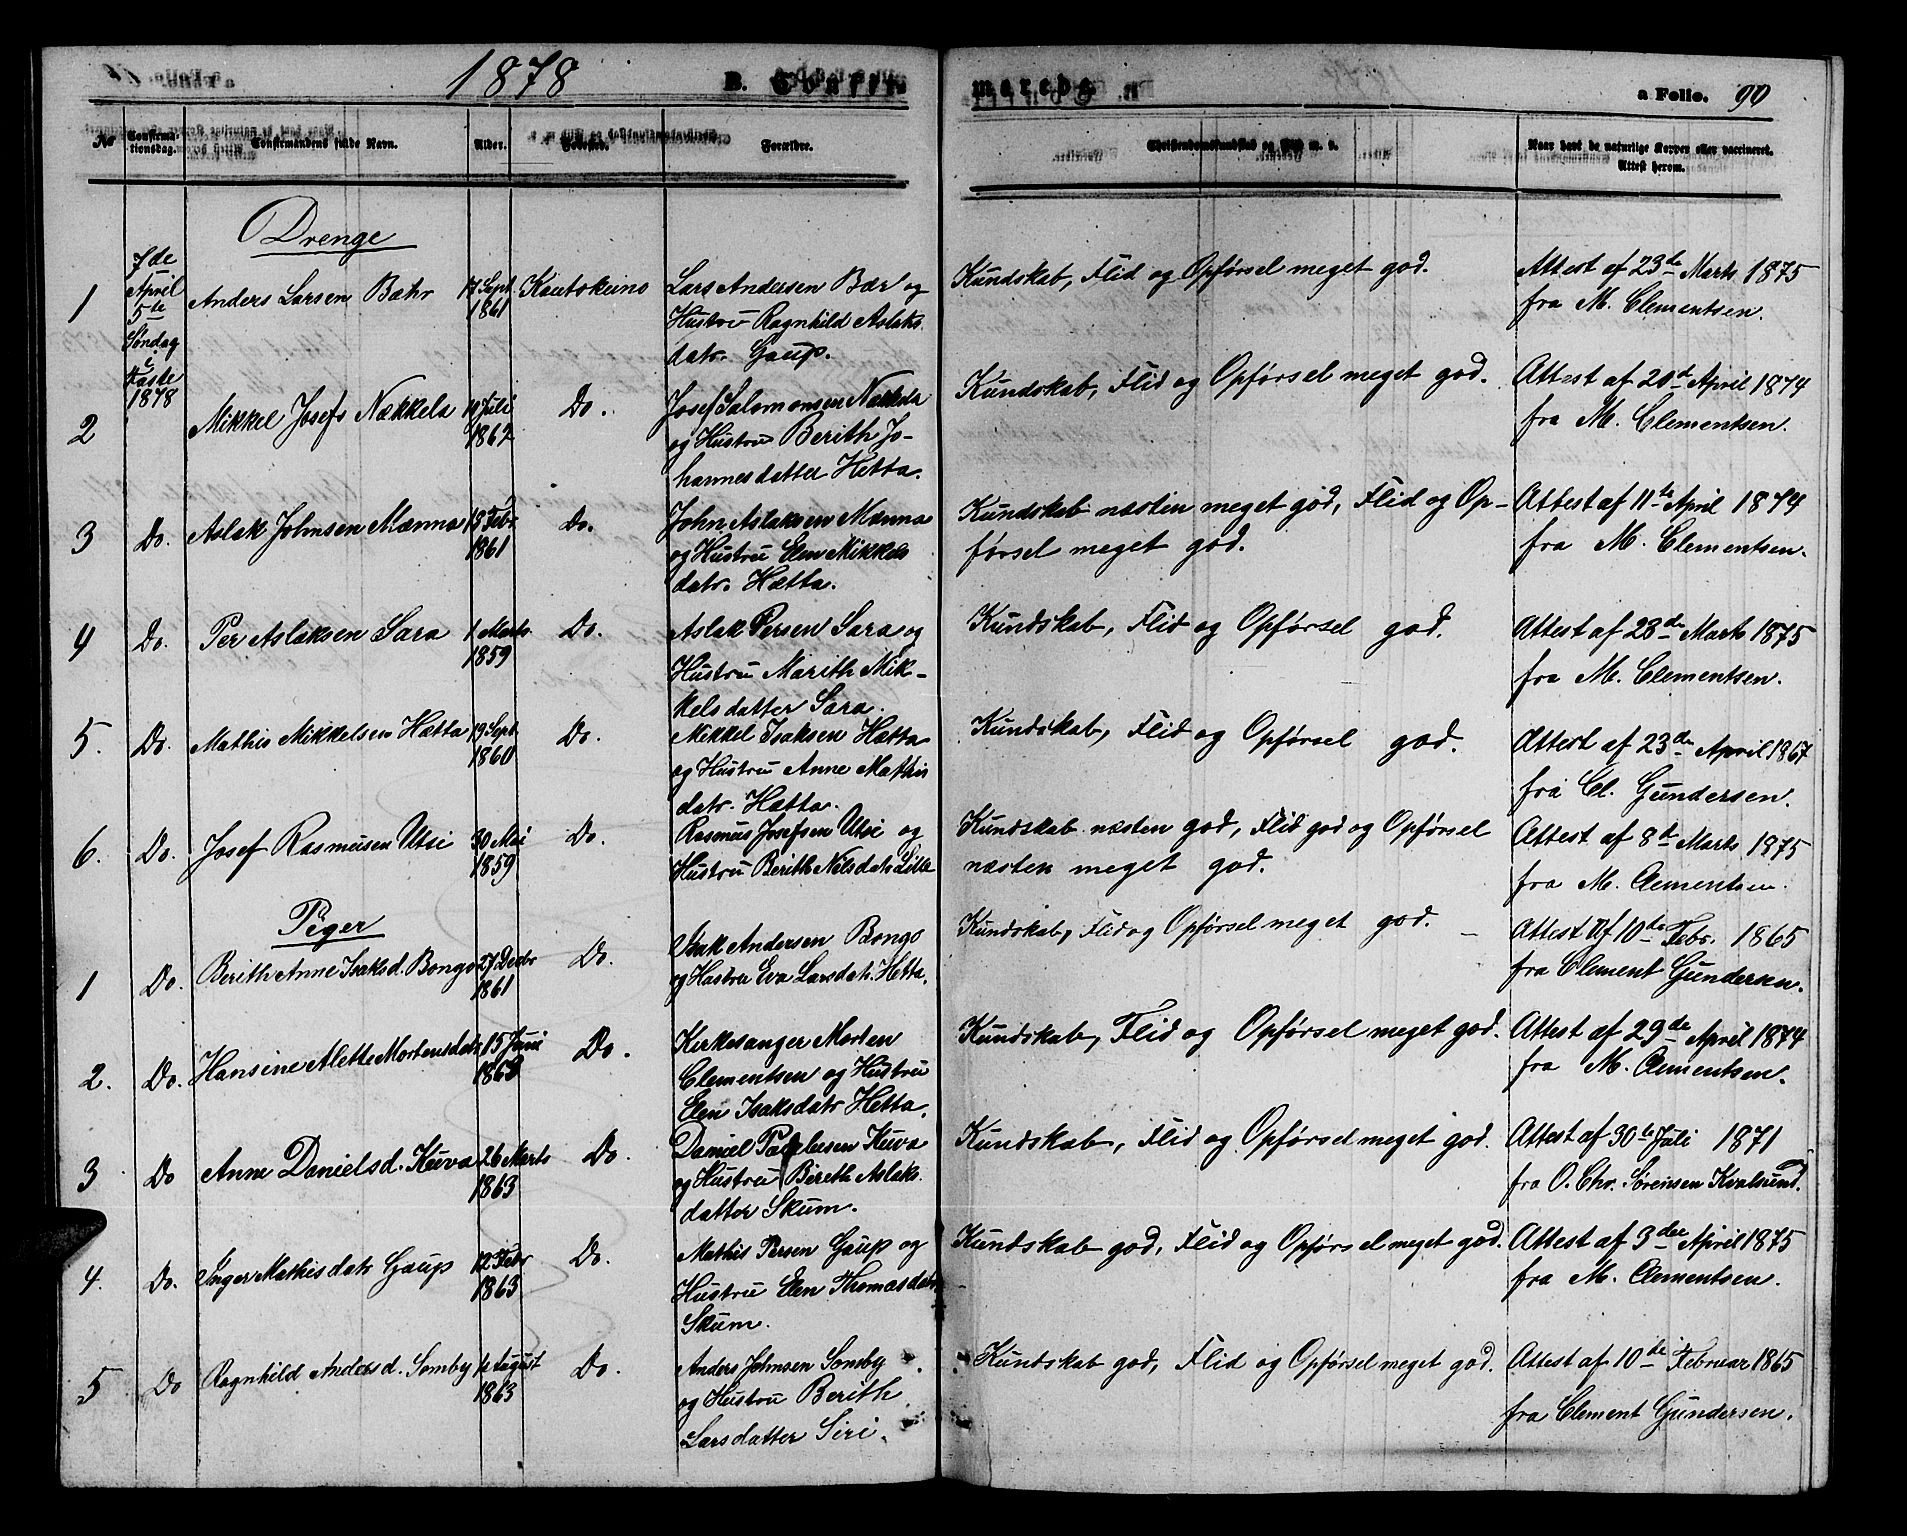 1878 B. Confir-
marede. a Folio. 90
No Confirma-tionsdag. Confirmandens fulde Navn. Alder. Fødested. Forældre. Christendomskundskab og Flid m. v. Naar havt de naturlige Kopper eller vaccineret. Attest herom.
Drenge
1 7de April 5te Søndag i Faste 1878 Anders Larsen Bæhr 17 Sept. 1861 Kautokeino Lars Andersen Bær og
Hustru Ragnhild Aslaks
datr. Gaup.
Kundskab, Flid og Opførsel meget god.
Attest af 23de Marts 1875
fra M. Clementsen.
2 Mikkel Josefs Nækkela Juli 1862 Do. Josef Salomonsen Nækkela
og Hustru Berith Jo-
hannesdatter Hetta.
Kundskab, Flid og Opførsel meget god.
Attest af 20de April 1874
fra M. Clementsen.
3 Do. Aslak Johnsen Mænna 18 Febr. 1861 Do. John Aslaksen Mænna
og Hustru Elen Mikkels
datr. Hætta.
Kundskab næsten meget god, Flid og Op-
førsel meget god.
Attest af 11te April 1874
fra M. Clementsen.
4 Do. Per Aslaksen Sara 1 Marts 1859 Do. Aslak Persen Sara og
Hustru Marith Mik-
kelsdatter Sara.
Kundskab, Flid og Opførsel god.
Attest af 23de Marts 1875
fra M. Clementsen.
5. Do. Mathis Mikkelsen Hætta 19 Sept 1860 Do. Mikkel Isaksen Hætta
og Hustru Anne Mathis
datr. Hætta.
Kundskab, Flid og Opførsel god.
Attest af 23de April 1867
fra Cl. Gundersen.
6. Do. Josef Rasmusen Utsi 30 Mai 1859 Do. Rasmus Josefsen Utsi og
Hustru Berith Nilsdatr.
Kundskab næsten god, Flid god og Opførsel
næsten meget god.
Attest af 8de Marts 1875
fra M. Clementsen.
Piger
1 Do. Berith Anne Isaksd. Bongo 27 Decbr 1861 Do. Isak Andersen Bongo
og Hustru Eva Larsdatr. Hetta.
Kundskab, Flid og Opførsel meget god.
Attest af 10de Febr. 1865
fra Clement Gundersen.
2. Do. Hansine Alette Mortensdatr 15 Juni Do. Kirkesanger Morten
Clementsen og Hustru
Elen Isaksdatr Hetta.
Kundskab, Flid og Opførsel meget god.
Attest af 29de April 1874
fra M. Clementsen.
3 Do Anne Danielsd. Kuva 26 Marts 1863 Do. Daniel Kuva
og Hustru Berith Aslaks
datter Skum.
Kundskab, Flid og Opførsel meget god.
Attest af 30te Juli 1871
fra O. Chr. Sørensen Kvalsund.
4. Do. Inger Mathisdatr Gaup 12 Febr 1863 Do. Mathis Persen Gaup og
Hustru Elen Thomasdatr
Skum.
Kundskab god, Flid og Opførsel meget god.
Attest af 3die April 1875
fra M. Clementsen.
5 Do Ragnhild Andersd. Somby August 1863 Do. Anders Johnsen Somby
og Hustru Berith
Larsdatter Siri.
Kundskab god, Flid og Opførsel meget god.
Attest af 10de Februar 1865
fra Clement Gundersen.